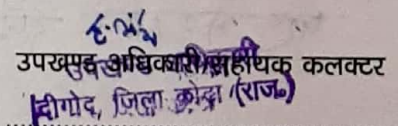 उपखण्ड अधिकारी सहायक कलक्टर
दीगोद, जिला कोटा (राज०)